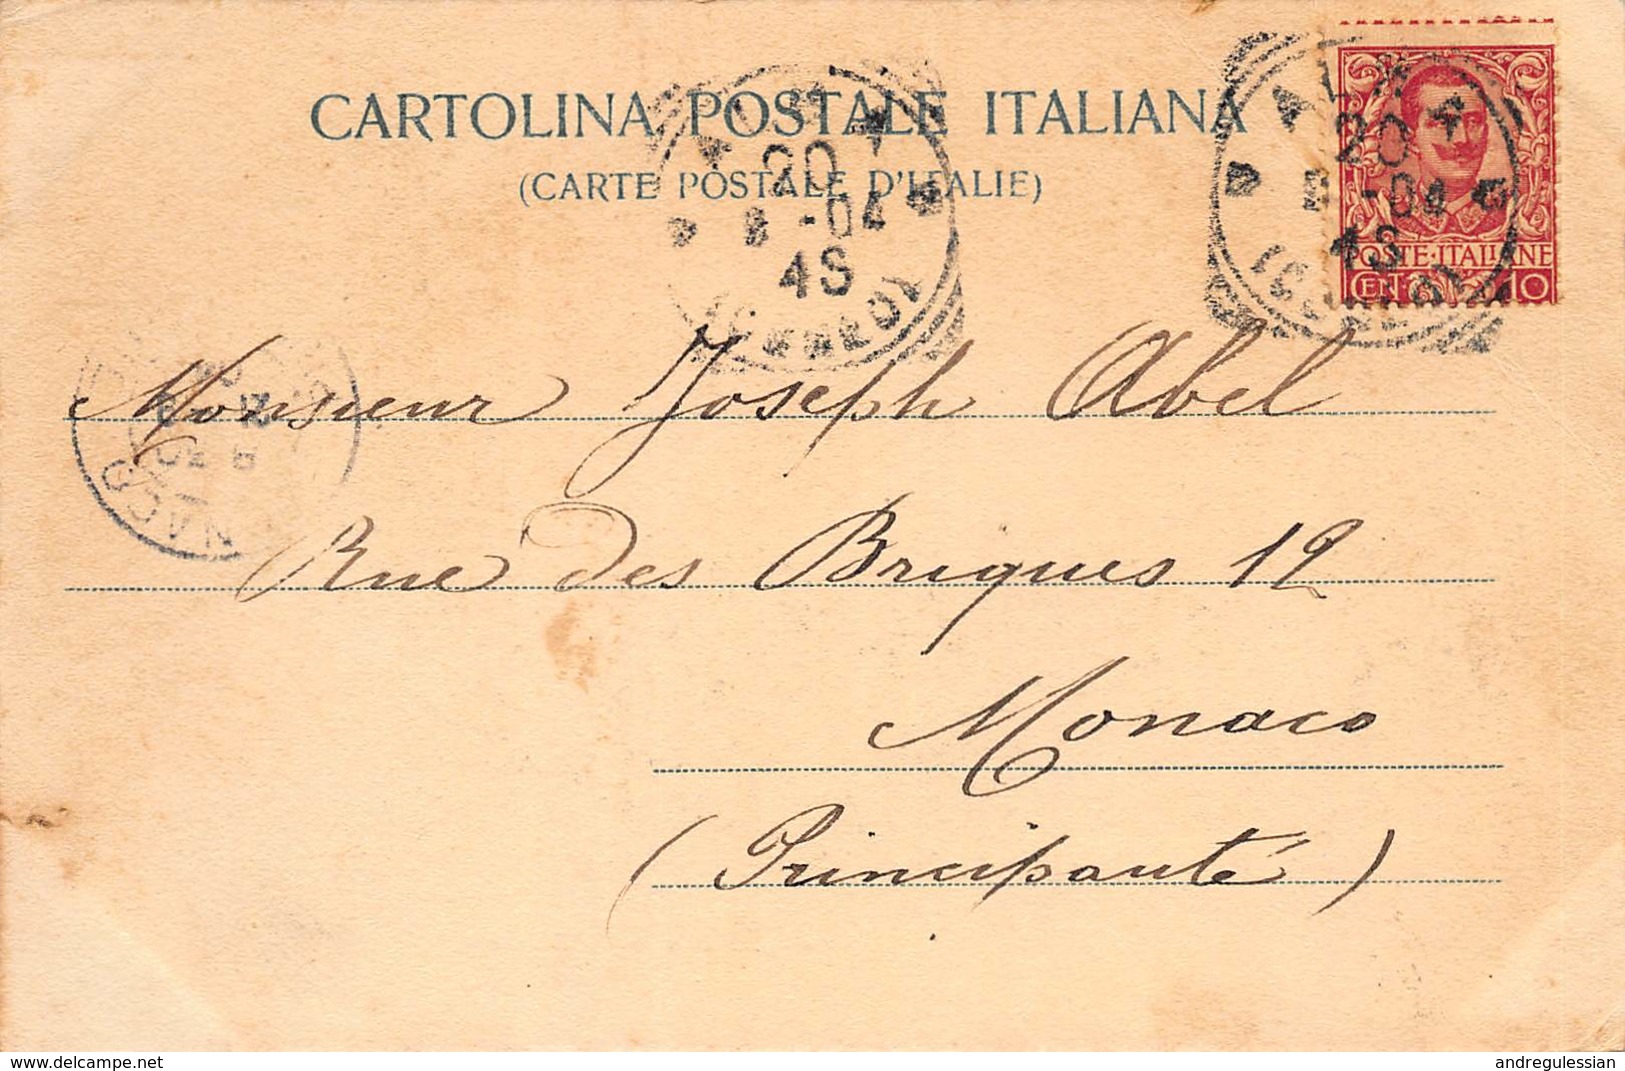 CARTOLINA POSTALE ITALIANA
(CARTE POSTALE D'ITALIE)
20
-04
4S
(CUNEO)
20
-04
4S
(CUNEO)
POSTE·ITALIANE
CEN 10
Monsieur Joseph Abel
Rue des Briques 12
Monaco
(Principauté)
delcampe.net
andregulessian